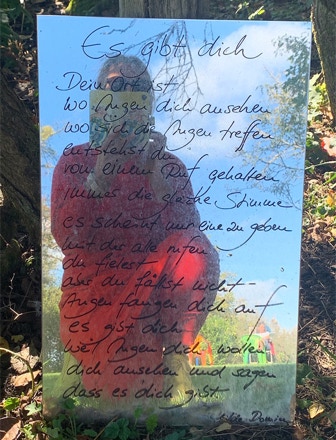 Es gibt dich
Dein Ort ist
wo Augen dich ansehen
wo sich die Augen treffen
entstehst du
von einem Ruf gehalten
immer die gleiche Stimme
es scheint nur eine zu geben
mit der alle rufen
du fielest
aber du fällst nicht -
Augen fangen dich auf
es gibt dich
weil Augen dich wollen
dich ansehen und sagen
dass es dich gibt
Hilde Domin